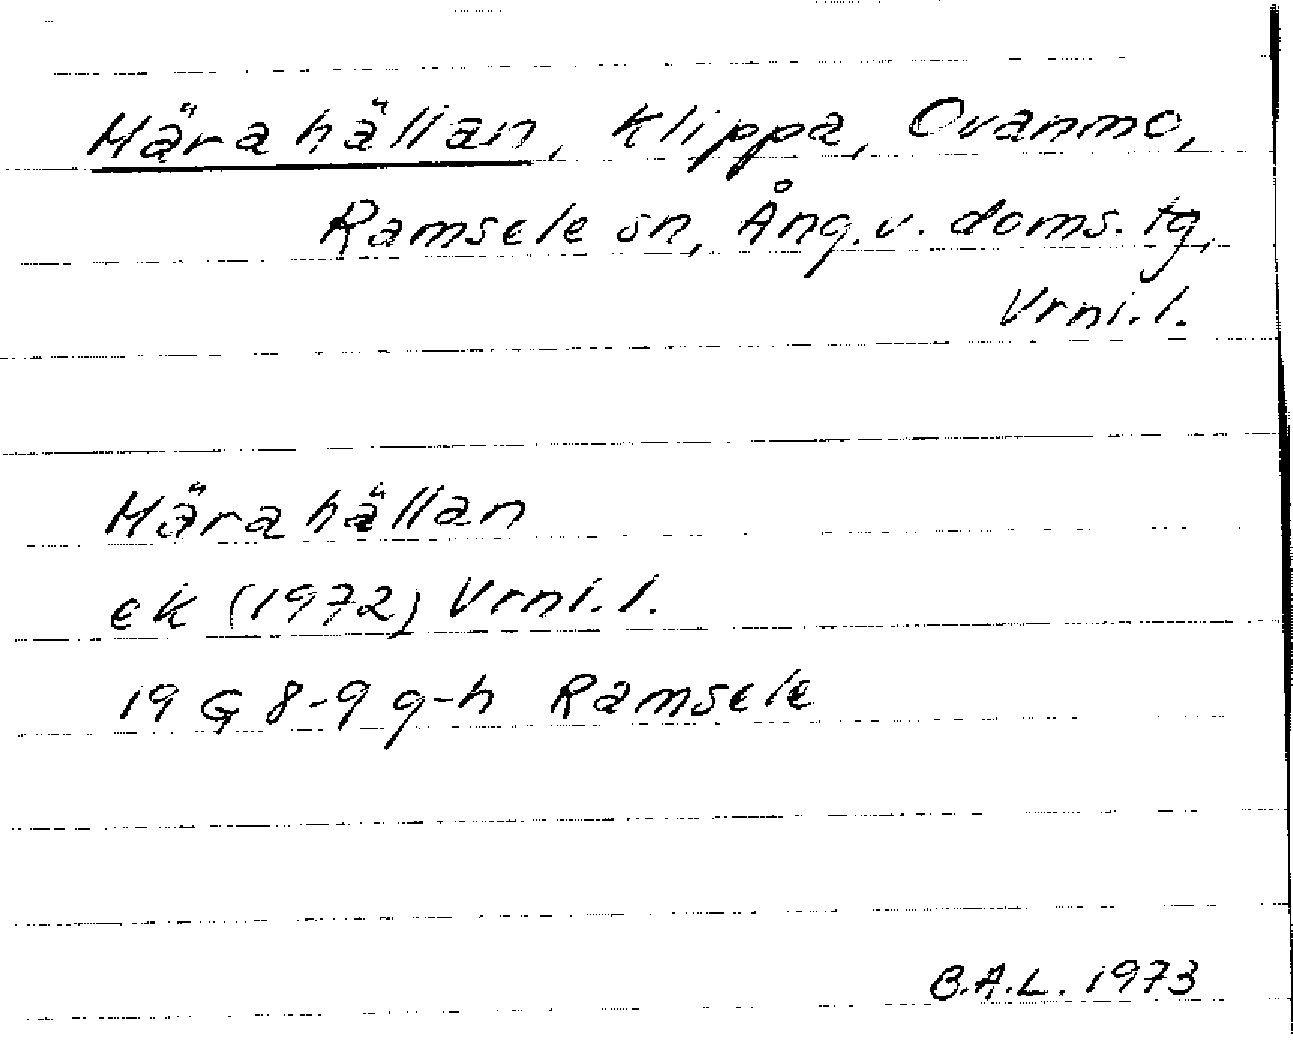 Märahällan, Klippa, Ovanmo,
Ramsele sn, Ång. v. doms. tg,
Vrnl. l.
Märahällan
ek (1972) Vrnl. l.
19 G 8-9 g-h Ramsele
B.A.L. 1973